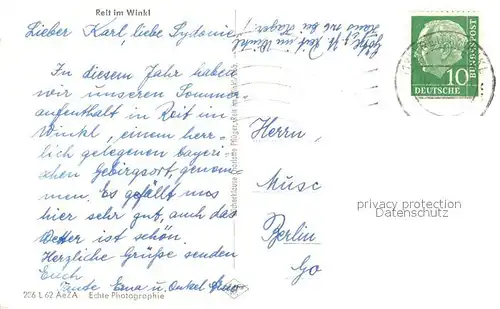 Reit im Winkl
Lieber Karl, liebe Sydonie,
In diesem Jahr haben
wir unseren Sommer-
aufenthalt in Reit im
Winkl, einem herr-
lich gelegenen bayeri-
schen Gebirgsort, genom-
men. Es gefällt uns
hier sehr gut, auch das
Wetter ist schön.
Herzliche Grüße senden
Euch
Tante Erna u. Onkel
206 L 62 AeZA Echte Photographie
Reit im Winkl
10
DEUTSCHE
BUNDESPOST
Herrn,
Musc
Berlin
privacy protection
Datenschutz